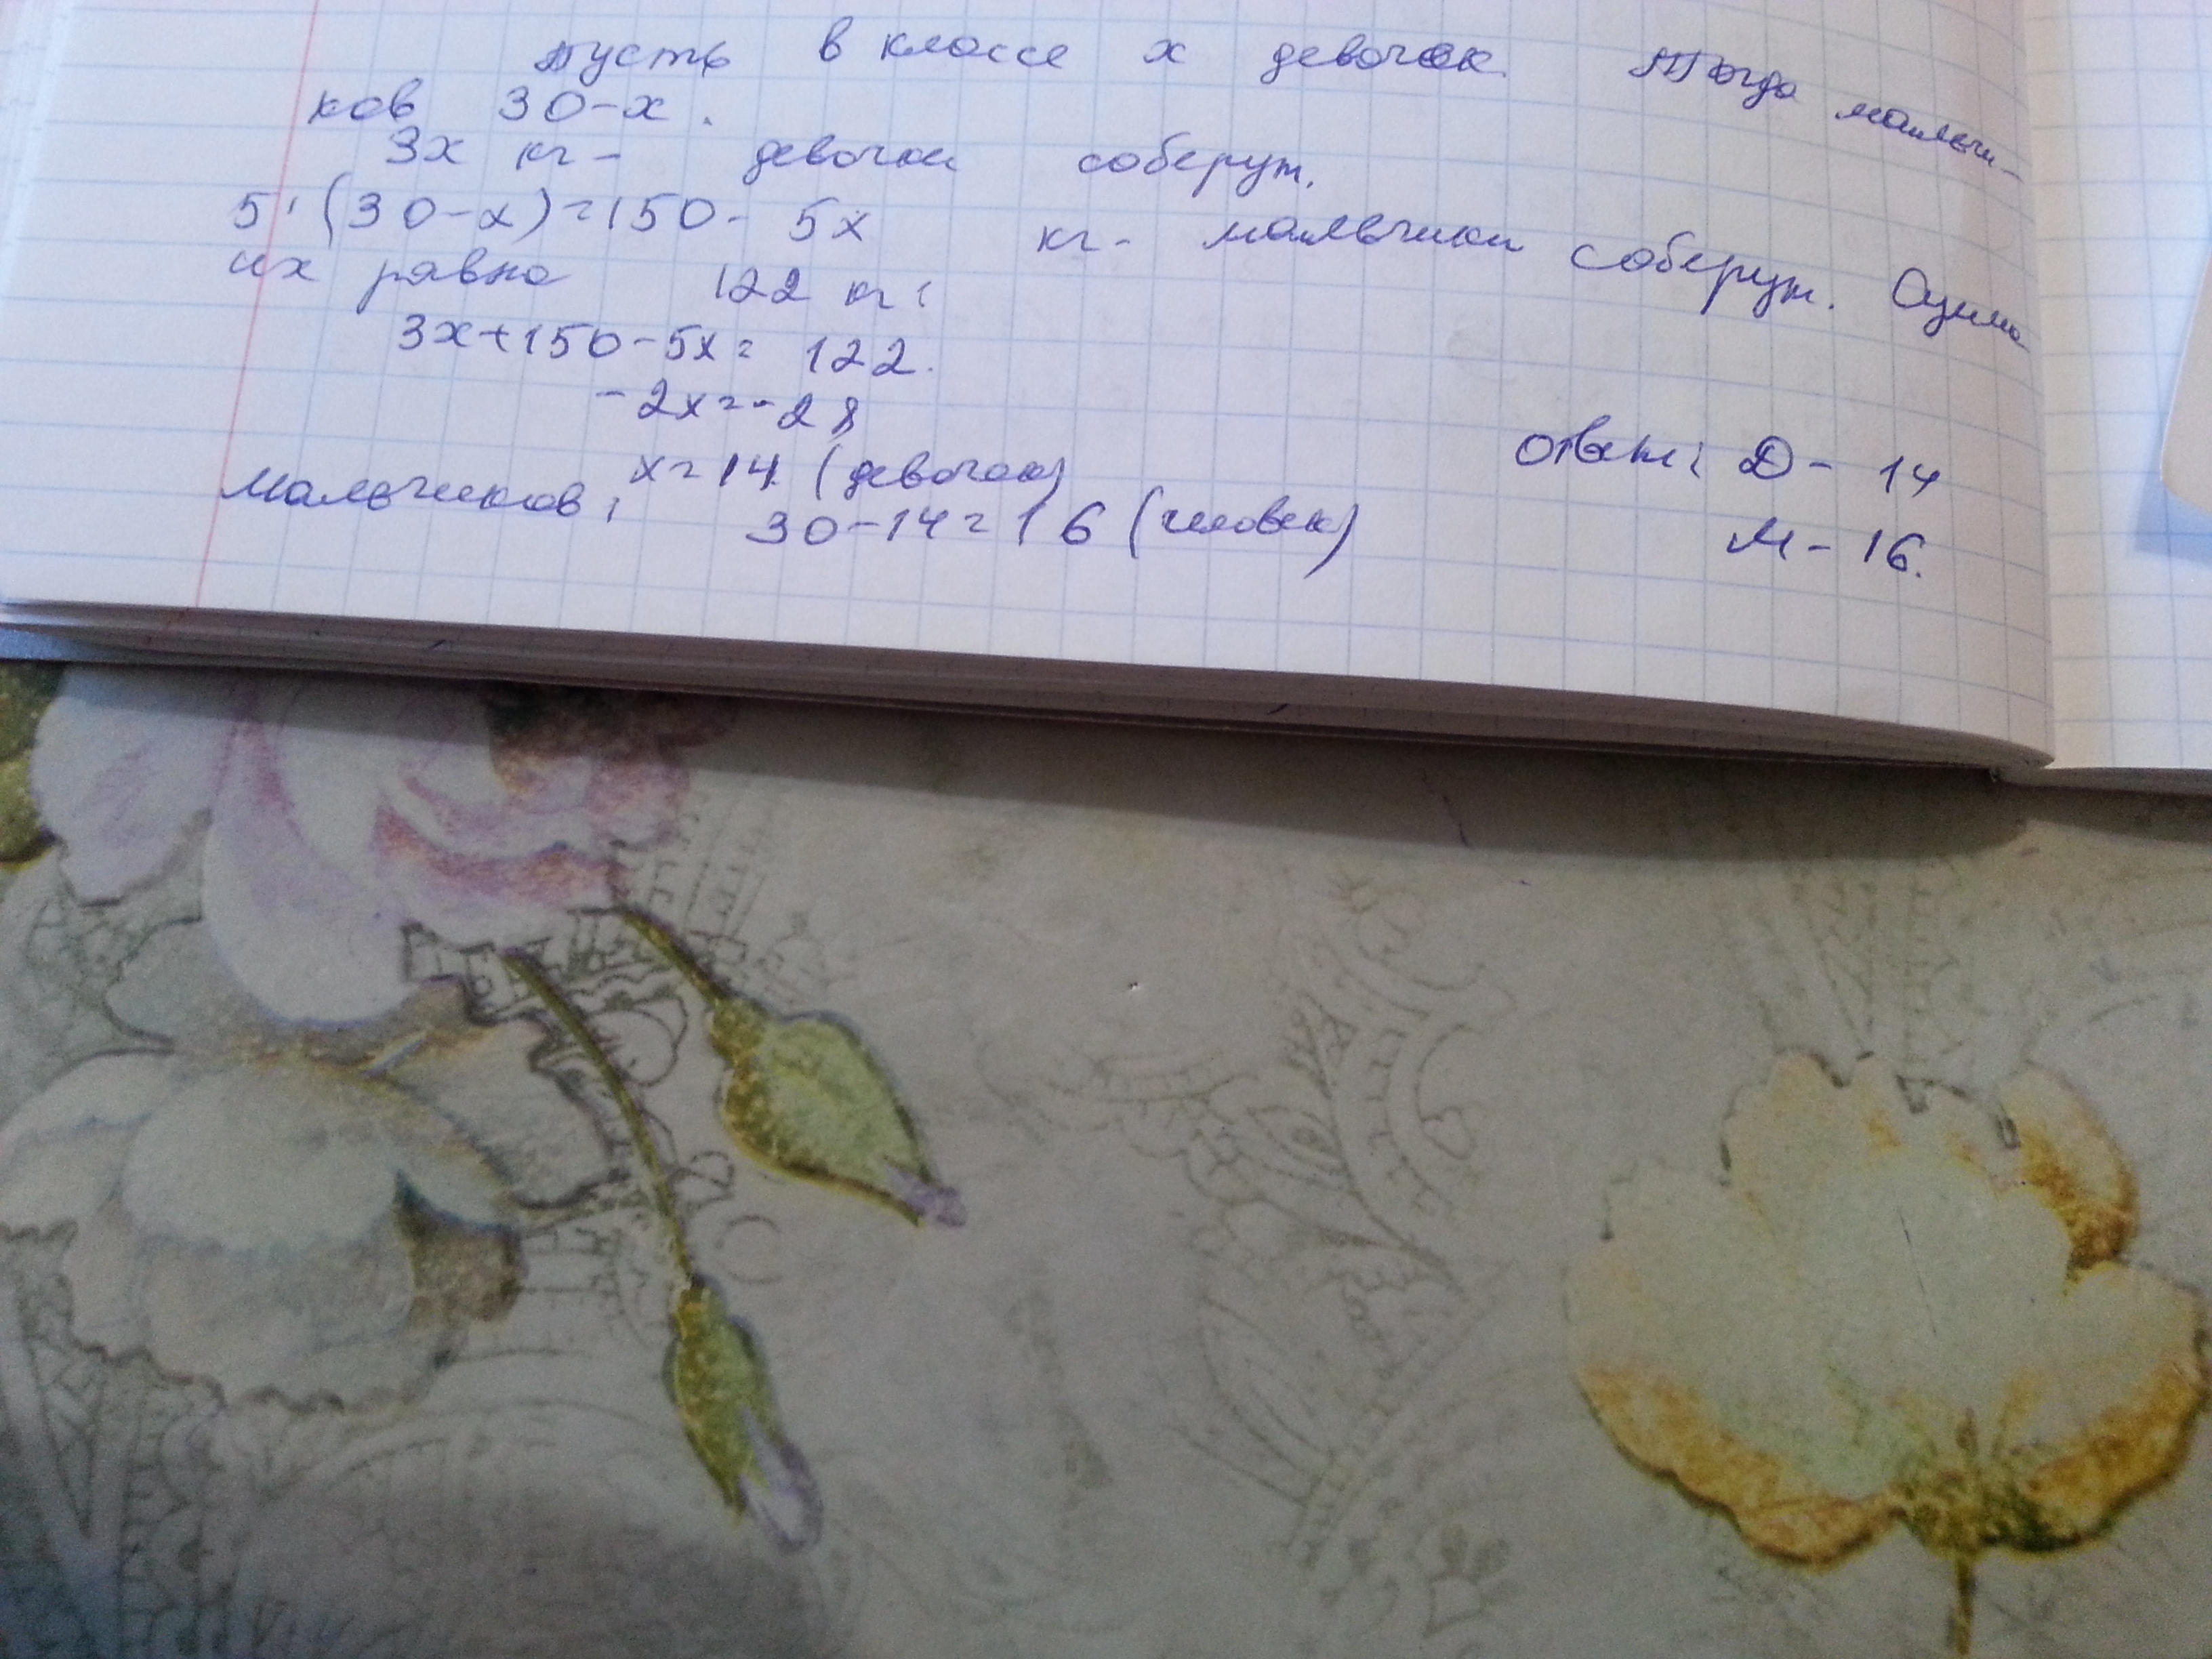 Пусть в классе х девочек. Тогда мальчи-
ков 30-х.
3х кг - девочки соберут.
5·(30-х)=150-5х кг - мальчики соберут. Сумма
их равна 122 кг:
3х+150-5х=122.
-2х=-28
х=14 (девочек)
Мальчиков: 30-14=16 (человек)
Ответ: Д - 14
М - 16.